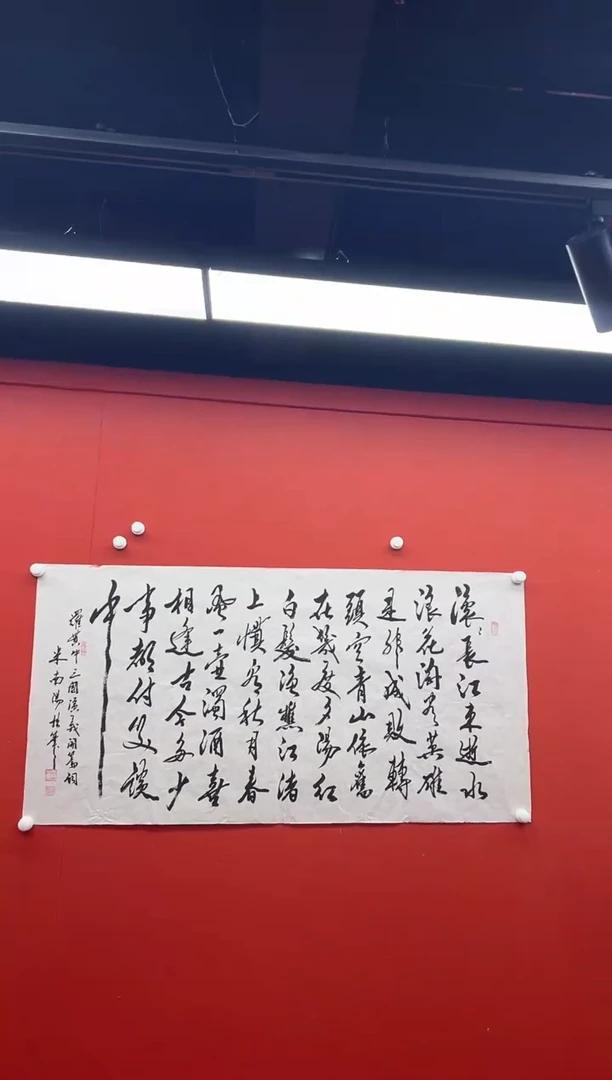 滾〻長江東逝水
浪花淘盡英雄
是非成敗轉
頭空青山依舊
在幾度夕陽紅
白髮漁樵江渚
上慣看秋月春
風一壺濁酒喜
相逢古今多少
事都付笑談
中
羅貫中三國演義開篇詞
米南陽於筆